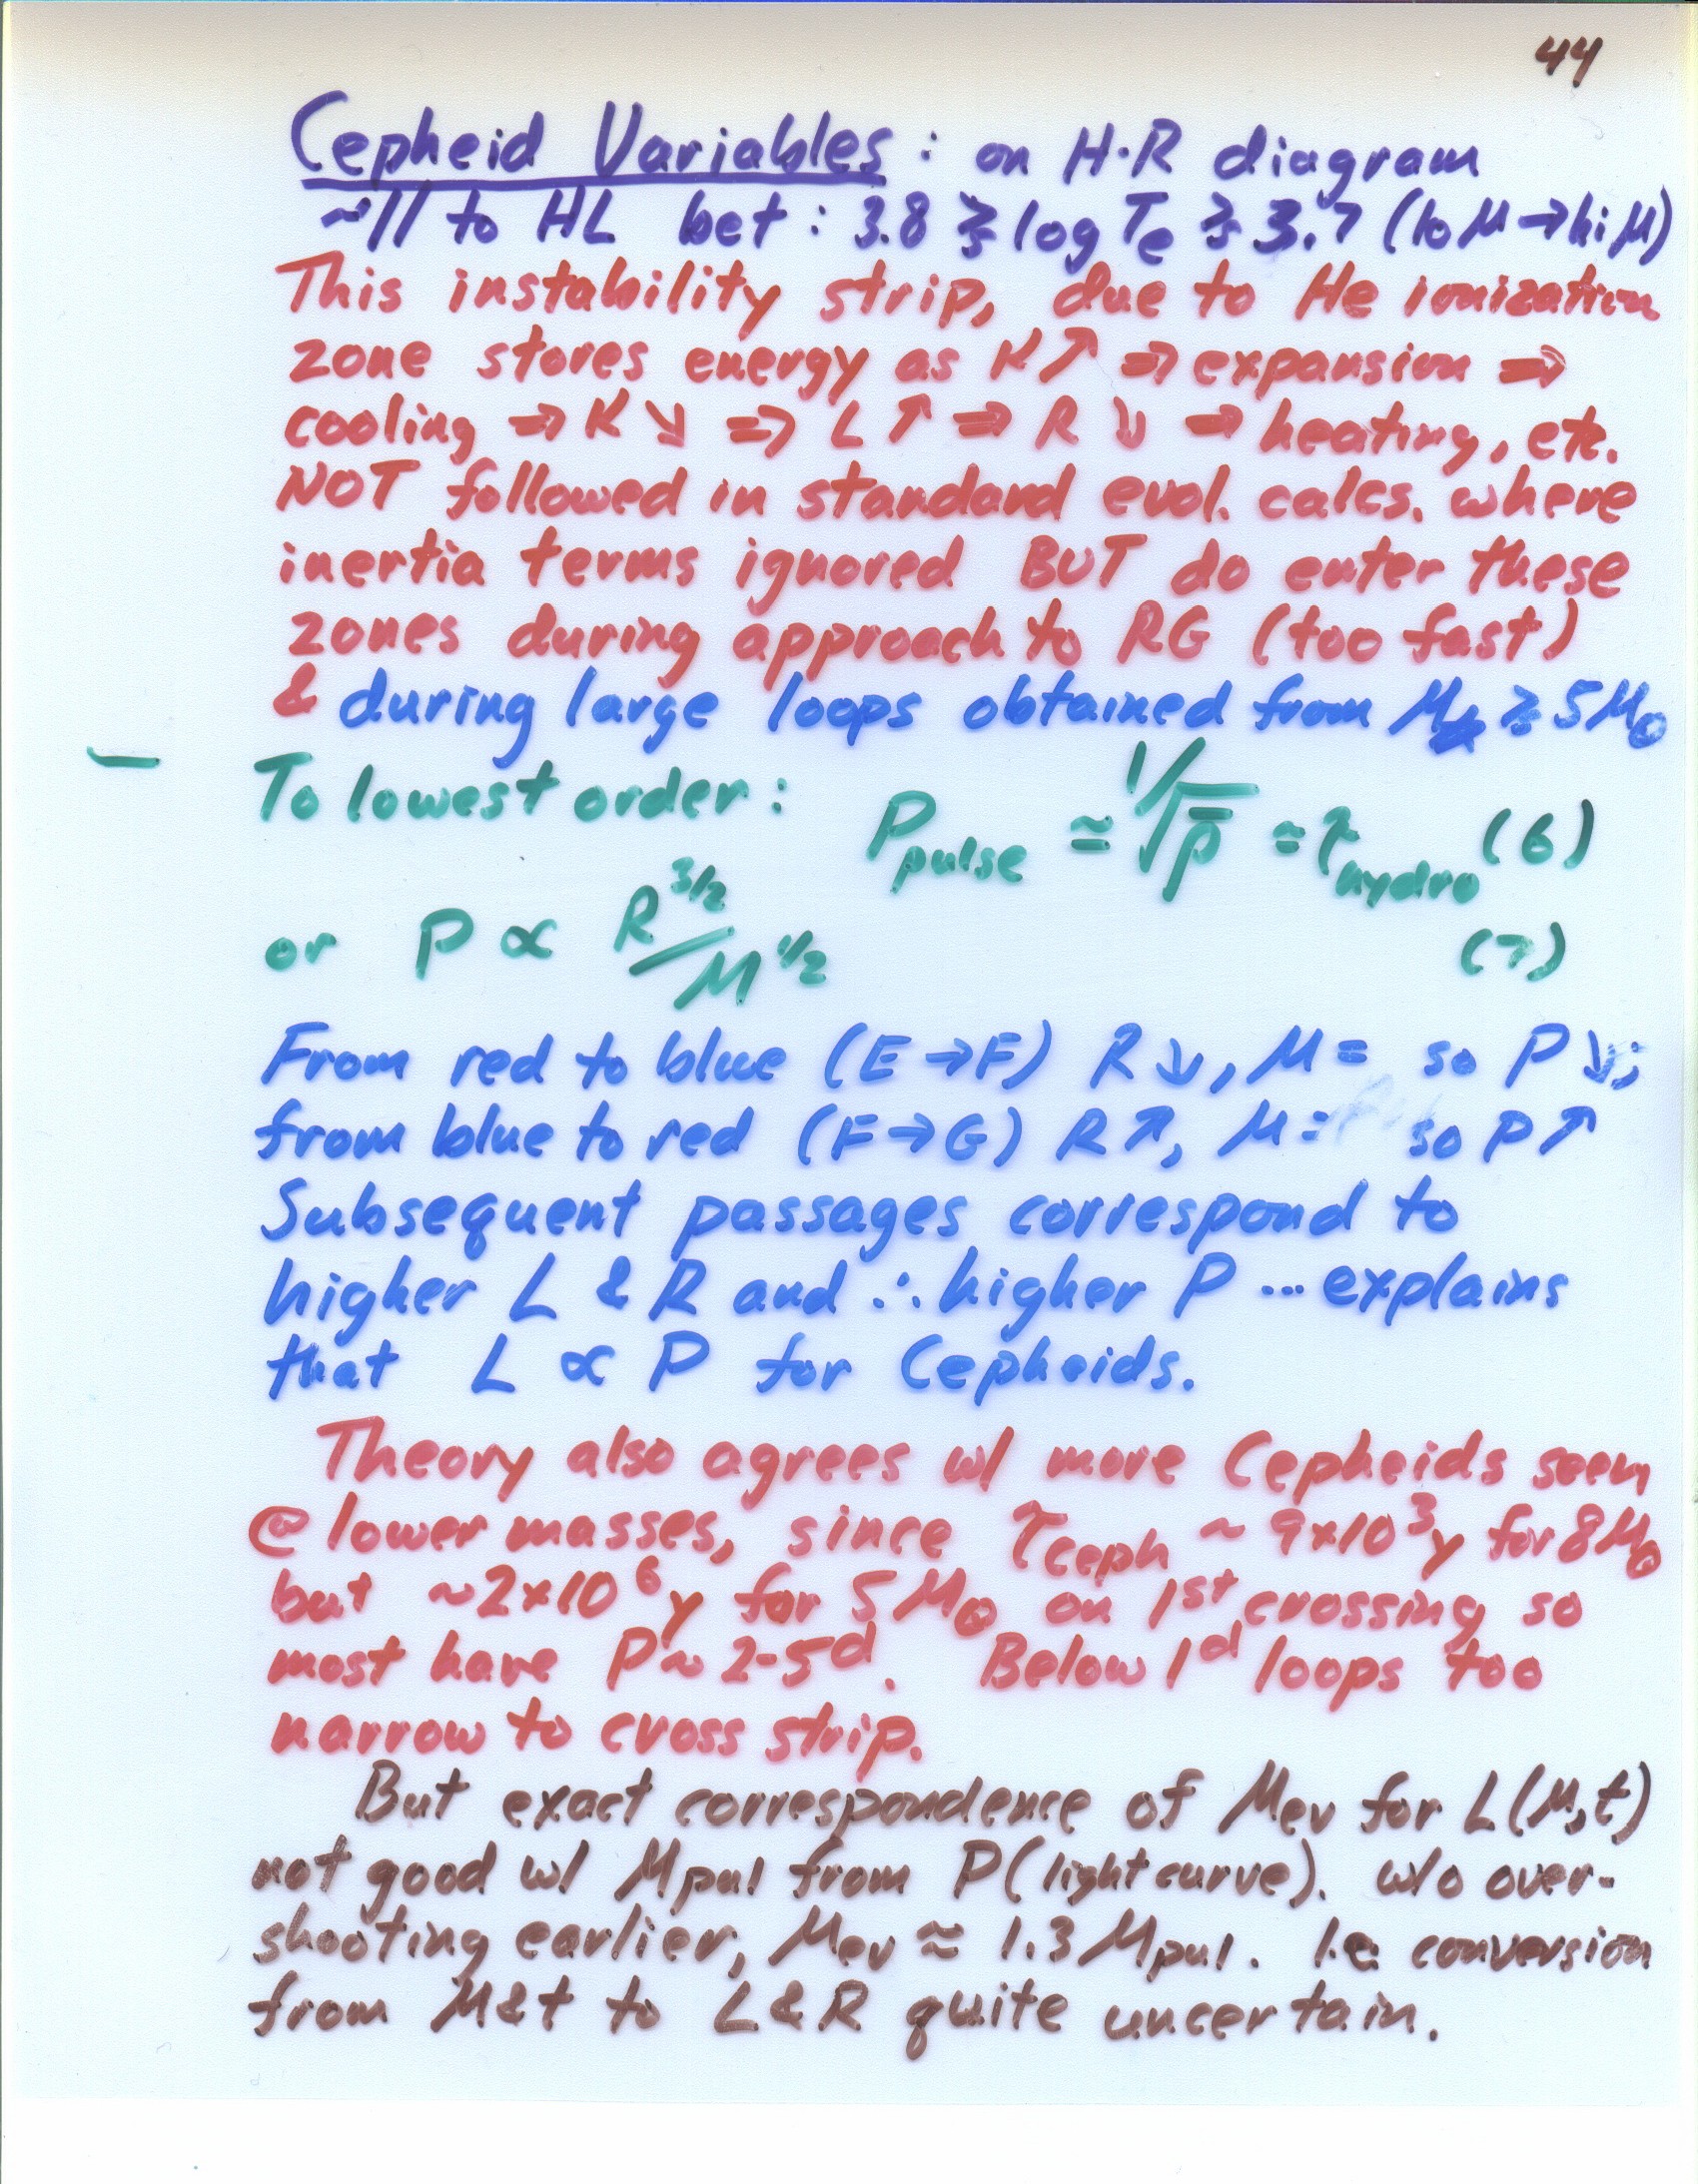 44
Cepheid Variables : on H-R diagram
~ // to HL bet : 3.8 ≳ log Te ≳ 3.7 (lo M → hi M)
This instability strip, due to He ionization
zone stores energy as K↗ ⇒ expansion ⇒
cooling ⇒ K ↘ ⇒ L ↗ ⇒ R ↘ ⇒ heating, etc.
NOT followed in standard evol. calcs. where
inertia terms ignored BUT do enter these
zones during approach to RG (too fast)
& during large loops obtained from M ≳ 5M⊙
To lowest order : P_pulse ≃ 1/√ρ̄ ≃ τ_hydro (6)
or P ∝ R^3/2 / M^1/2 (7)
From red to blue (E → F) R ↘, M = so P ↘;
from blue to red (F → G) R ↗, M = so P ↗
Subsequent passages correspond to
higher L & R and ∴ higher P ... explains
that L ∝ P for Cepheids.
Theory also agrees w/ more Cepheids seen
@ lower masses, since τ_Ceph ~ 9×10³y for 8M⊙
but ~2×10⁶y for 5M⊙ on 1st crossing so
most have P ~ 2-5^d. Below 1^d loops too
narrow to cross strip.
But exact correspondence of Mev for L(M,t)
not good w/ Mpul from P(light curve). w/o over-
shooting earlier, Mev ≈ 1.3 Mpul. I.e. conversion
from M&t to L&R quite uncertain.